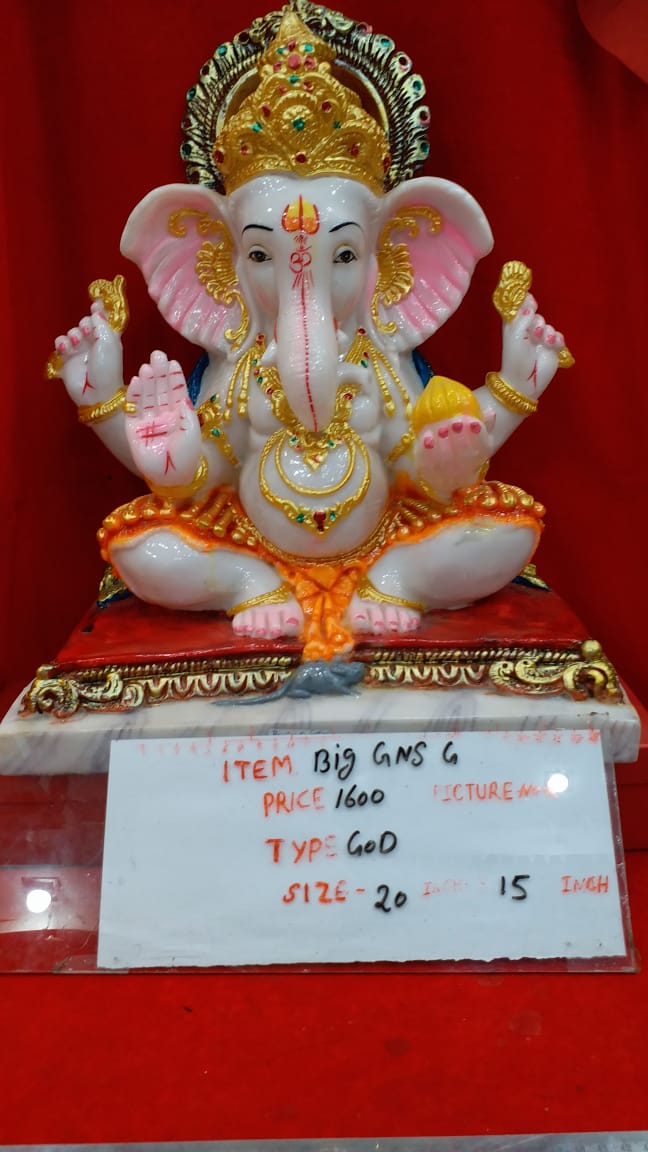 ITEM. Big GNS G
PRICE 1600 PICTURE
TYPE GOD
SIZE - 20 INCH 15 INCH
ॐ